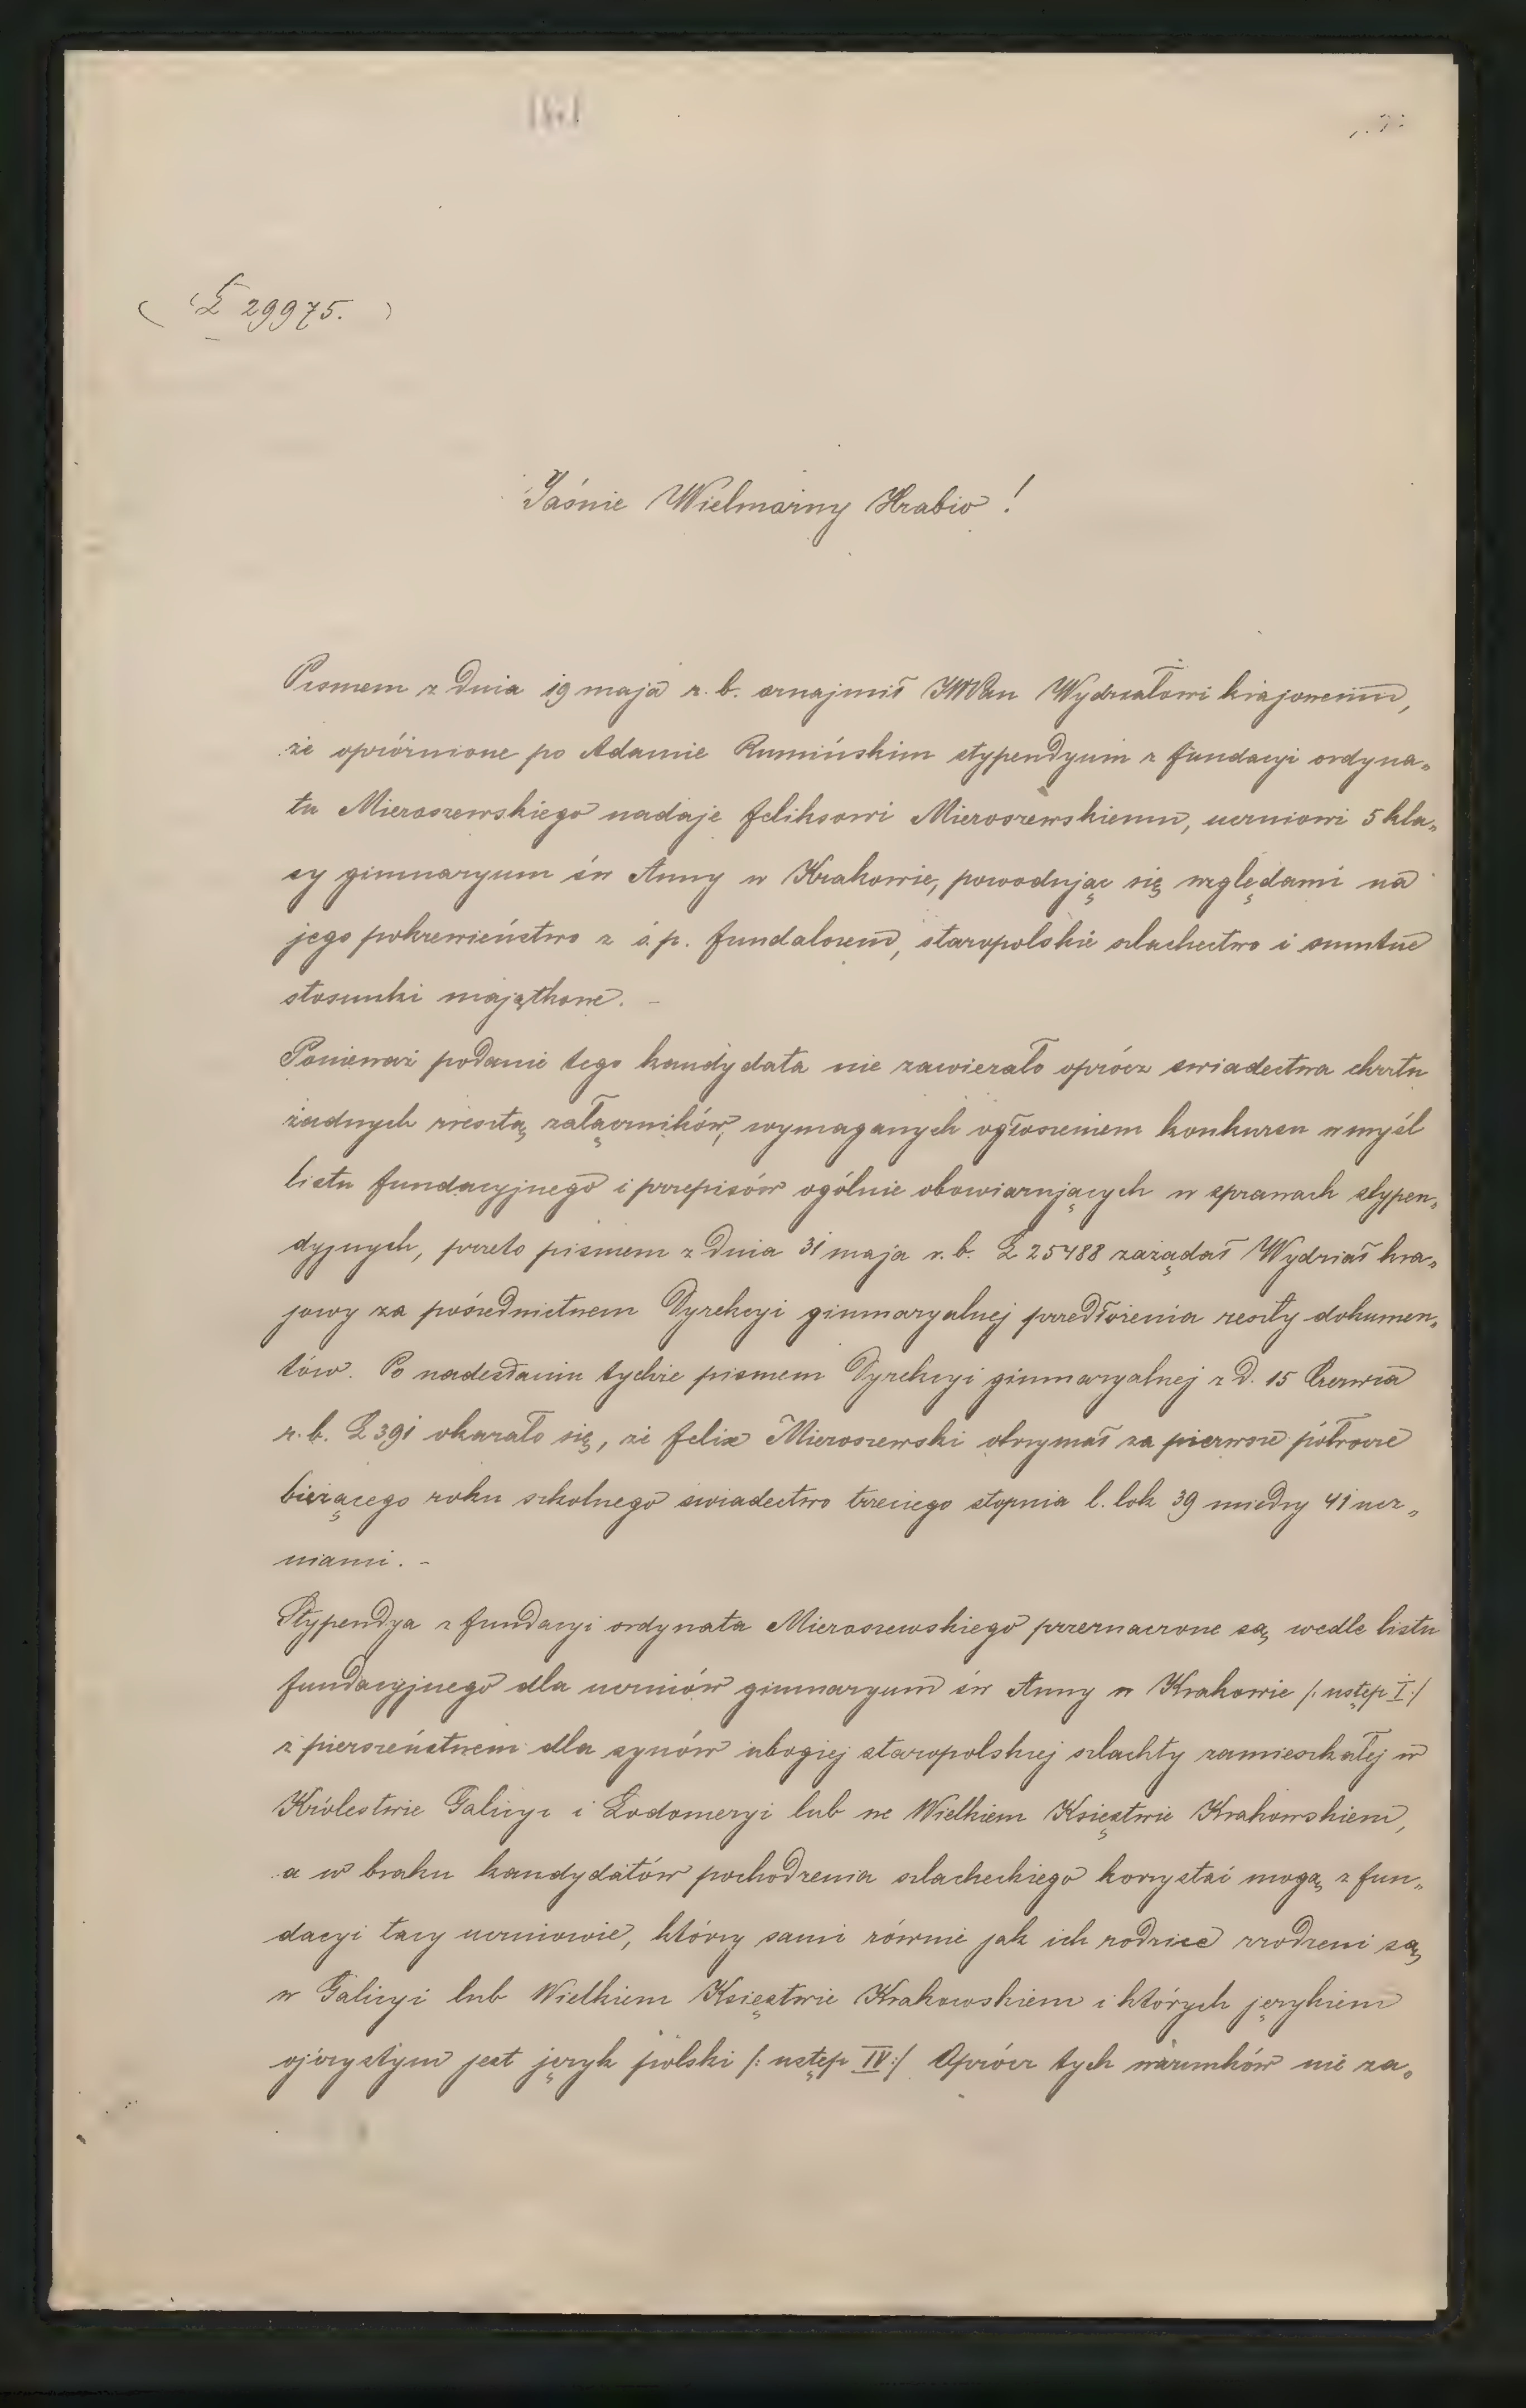 Ł 29975.
Jaśnie Wielmożny Hrabio!
Pismem z dnia 19 maja r. b. oznajmił JWPan Wydziałowi krajowemu,
że opróżnione po Adamie Rumińskim stypendyum z fundacyi ordyna„
ta Mieroszewskiego nadaje Feliksowi Mieroszewskiemu, uczniowi 5 kla„
sy gimnazyum św Anny w Krakowie, powodując się względami na
jego pokrewieństwo z ś. p. fundatorem, staropolskie szlachectwo i smutne
stosunki majątkowe. —
Ponieważ podanie tego kandydata nie zawierało oprócz swiadectwa chrztu
żadnych zresztą załączników, wymaganych ogłoszeniem konkursu w myśl
listu fundacyjnego i przepisów ogólnie obowiązujących w sprawach stypen„
dyjnych, przeto pismem z dnia 31 maja r. b. Ł 25488 zażądał Wydział kra„
jowy za pośrednictwem Dyrekcyi gimnazyalnej przedłożenia reszty dokumen„
tów. Po nadesłaniu tychże pismem Dyrekcyi gimnazyalnej z d. 15 Czerwca
r. b. Ł 391 okazało się, że Felix Mieroszewski otrzymał za pierwsze półrocze
bieżącego roku szkolnego swiadectwo trzeciego stopnia l. lok 39 miedzy 41 ucz„
niami. —
Stypendya z fundacyi ordynata Mieroszewskiego przeznaczone są, wedle listu
fundacyjnego dla uczniów gimnazyum św Anny w Krakowie /: ustęp I :/
z pierszeństwem dla synów ubogiej staropolskiej szlachty zamieszkałej w
Królestwie Galicyi i Lodomeryi lub we Wielkiem Księstwie Krakowskiem,
a w braku kandydatów pochodzenia szlacheckiego korzystać mogą z fun„
dacyi tacy uczniowie, którzy sami równie jak ich rodzice zrodzeni są
w Galicyi lub Wielkiem Księstwie Krakowskiem i których językiem
ojczystym jest język polski /: ustęp IV :/ Oprócz tych warunków nie za„